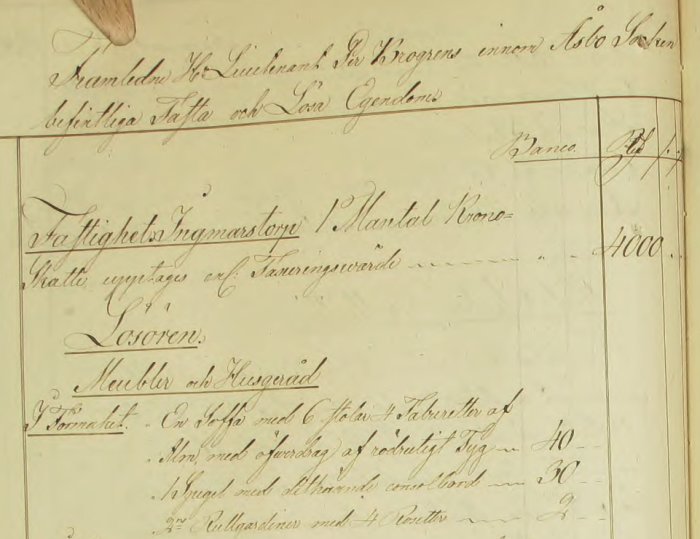 Framledne Hr Lieutenant Per Krogrens innom Åsbo Socken
befintliga Fasta och Lösa Egendoms
Banco. Rd
Fastighet Ingmarstorp 1 Mantal Krono=
Skatte upptages enl: Taxeringswärde 4000
Lösören
Meubler och Husgeråd
I Förmaket. En Soffa med 6 stolar 4 Taburetter af
Alm, med öfverdrag af rödrutigt Tyg 40
1 Spegel med dithörande consolbord 30
2ne Rullgardiner med 4 Rosetter 2